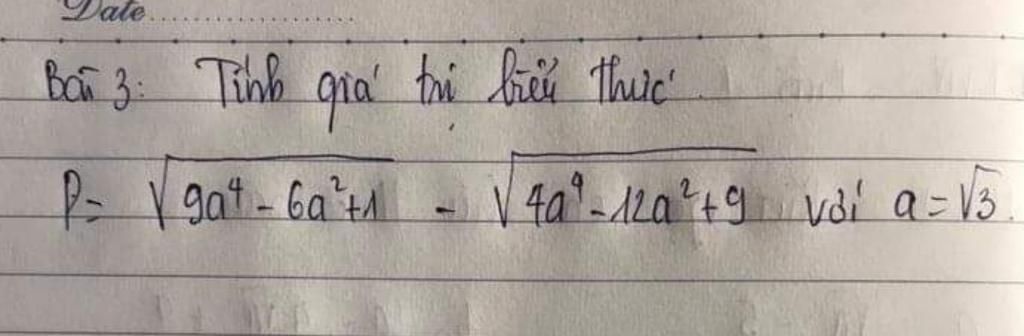 Date
Bài 3: Tính giá trị biểu thức.
P = √(9a⁴ - 6a² + 1) - √(4a⁴ - 12a² + 9) với a = √3.